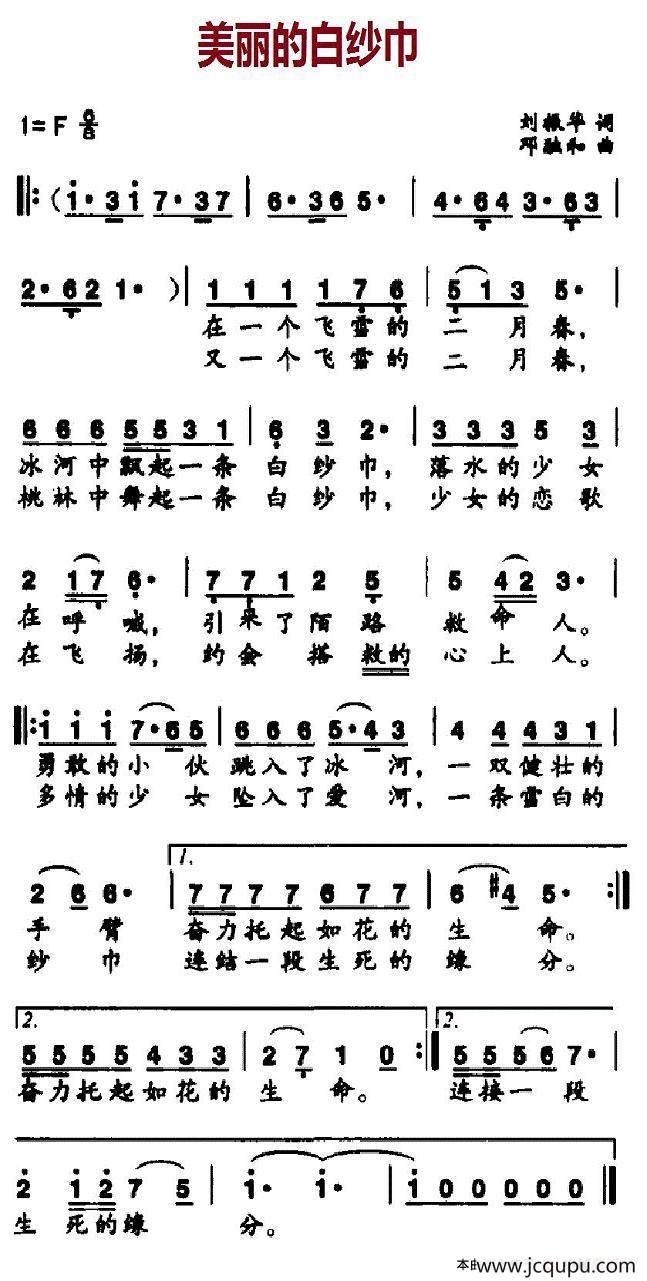 美丽的白纱巾
1=F 6/8
刘振华 词
邓融和 曲
‖:( i· 3 i 7· 3 7 | 6· 3 6 5· | 4· 6 4 3· 6 3 |
2· 6 2 1· )| 1 1 1 1 7 6 | 5 1 3 5· |
在一个飞雪的 二月春,
又一个飞雪的 二月春,
6 6 6 5 5 3 1 | 6 3 2· | 3 3 3 5 3 |
冰河中飘起一条 白纱巾, 落水的少女
桃林中舞起一条 白纱巾, 少女的恋歌
2 1 7 6· | 7 7 1 2 5 | 5 4 2 3· |
在呼喊, 引来了陌路 救命人。
在飞扬, 约会搭救的 心上人。
‖: i i i 7· 6 5 | 6 6 6 5· 4 3 | 4 4 4 3 1 |
勇敢的小伙 跳入了冰河, 一双健壮的
多情的少女 坠入了爱河, 一条雪白的
1.
2 6 6· | 7 7 7 7 6 7 7 | 6 #4 5· :‖
手臂 奋力托起如花的 生命。
纱巾 连结一段生死的 缘分。
2. 2.
5 5 5 5 4 3 3 | 2 7 1 0 :‖ 5 5 5 6 7· |
奋力托起如花的 生命。 连接一段
2 i 2 7 5 | i· i· | i 0 0 0 0 0 ‖
生死的缘 分。
本曲www.jcqupu.com